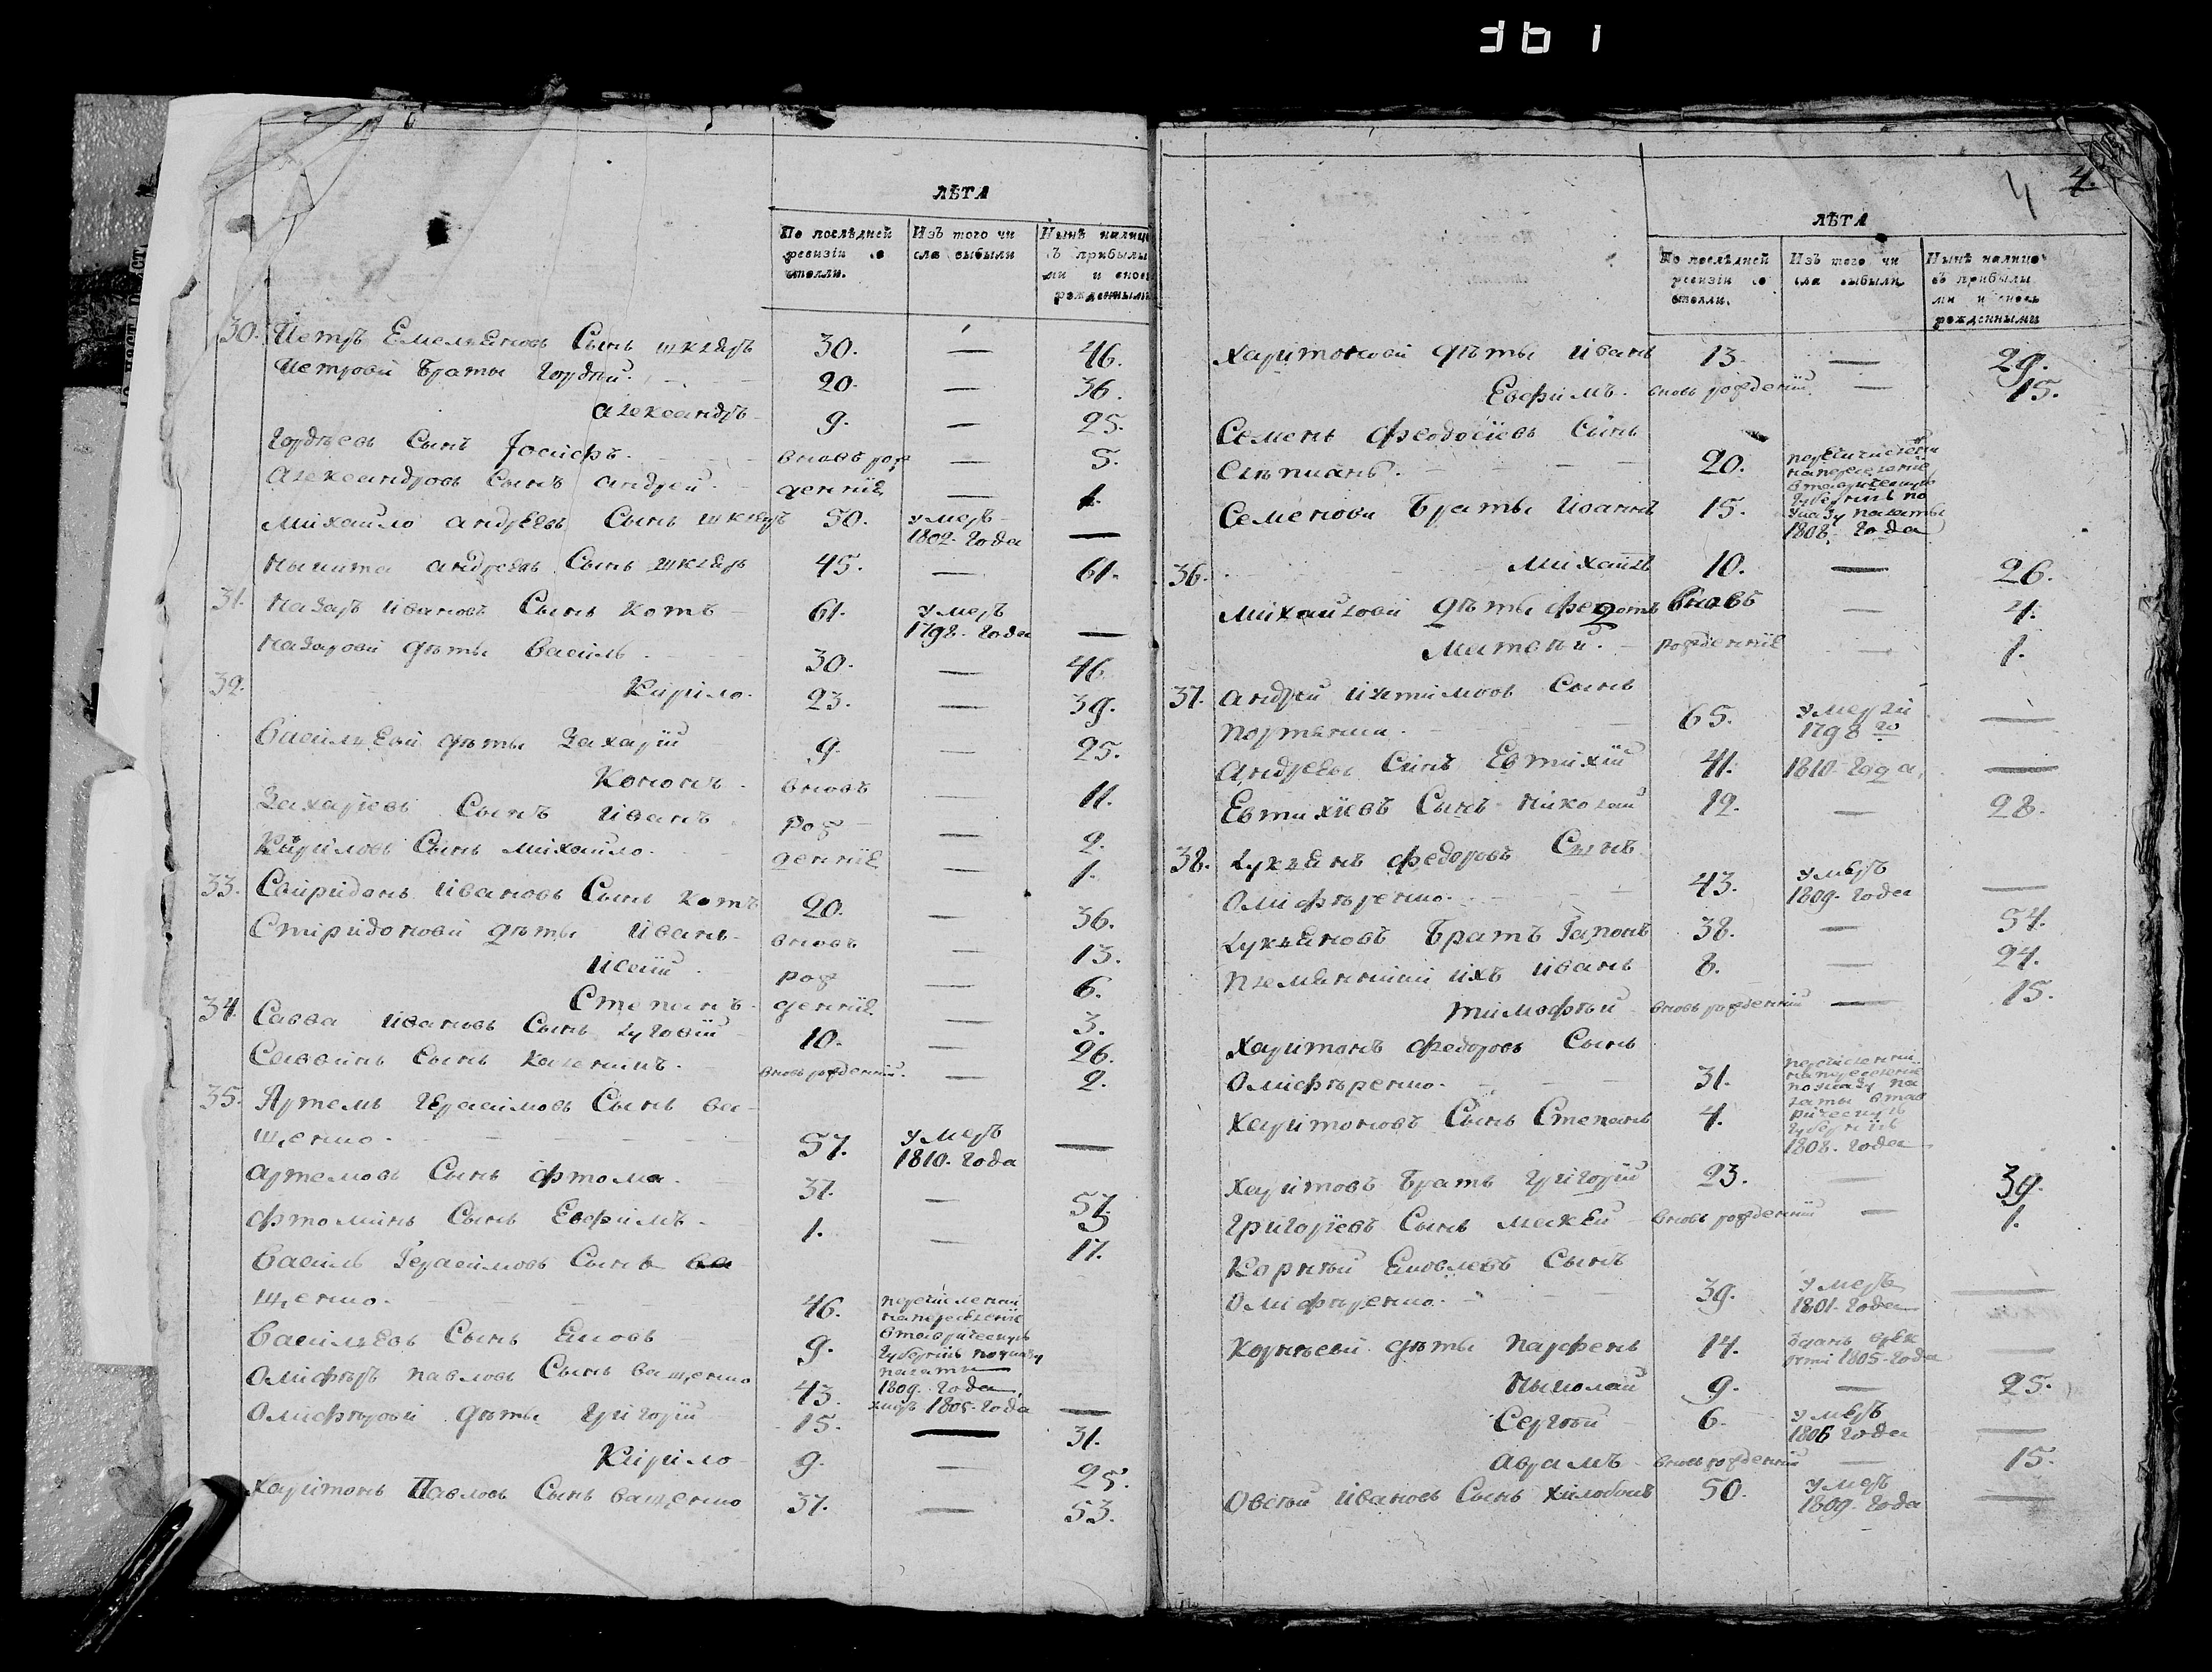 ЛѢТА
По послѣдней ревизіи состояли.
Изъ того числа выбыли
Нынѣ налицо съ прибылыми и вновь рожденными
30. Петръ Емельяновъ Сынъ шкляръ 30. — 46.
Петрови Браты Гордѣй. 20. — 36.
Александръ 9. — 25.
Гордѣевъ Сынъ Іосифъ. вновъ рож — 5.
Александровъ Сынъ Андрей. денніе — 1.
Михайло Андрѣевъ Сынъ шкляръ 50. умеръ 1802. Года —
Никита Андреевъ Сынъ шкляръ 45. — 61.
31. Назаръ Ивановъ Сынъ Котъ 61. умеръ 1798. Года —
Назарови дѣты Василь 30. — 46.
32. Киріло. 23. — 39.
Васильеви дѣты Захарій 9. — 25.
Кононъ. вновъ — 11.
Захаріевъ Сынъ Иванъ рож — 2.
Киріловъ Сынъ Михайло. денніе — 1.
33. Спиридонъ Ивановъ Сынъ Котъ 20. — 36.
Спиридонови дѣты Иванъ вновъ — 13.
Исай рож — 6.
Степанъ денніе — 3.
34. Савва Ивановъ Сынъ Луговій 10. — 26.
Саввинъ Сынъ Каленикъ. вновъ рожденній. — 2.
35. Артемъ Герасимовъ Сынъ Ва-
щенко. 57. умеръ 1810. Года —
Артемовъ Сынъ Фтома. 37. — 53.
Фтоминъ Сынъ Евфимъ. 1. — 17.
Василь Герасимовъ Сынъ Ва
щенко. 46. перечислени на переселеніе
Васильевъ Сынъ Яковъ 9. в таврическую Губернію по указу палаты 1809. Года
Олифѣръ Павловъ Сынъ Ващенко 43. умеръ 1805. Года —
Олифѣрови дѣты Григорій 15. — 31.
Киріло 9. — 25.
Харитонъ Павловъ Сынъ Ващенко 37. — 53.
4 4.
ЛѢТА
По послѣдней ревизіи состояли.
Изъ того числа выбыли
Нынѣ налицо съ прибылыми и вновь рожденными
Харитонови дѣты Иванъ 13. — 29.
Евфимъ. вновъ рожденній. — 15.
Семенъ Феодосіевъ Сынъ
20. перечислени на переселеніе
Семенови Браты Иоаннъ 15. в таврическую Губернію по указу палаты 1808. Года
36. Михайлъ 10. — 26.
Михайлови дѣты Федотъ вновъ — 4.
Матвѣй. рожденніе — 1.
37. Андрей Сынъ
65. умерли 1798 го —
Андреевъ Синъ Евтихій 41. 1810. Года, —
Евтихіевъ Сынъ Николай 12. — 28.
38. Лукьянъ Федоровъ Сынъ
Олифѣренко. 43. умеръ 1809. Года —
Лукьяновъ Братъ Гапонъ 38. — 54.
Племянники ихъ Иванъ 8. — 24.
Тимофѣй вновъ рожденній — 15.
Харитонъ Федоровъ Сынъ
Олифѣренко. 31. перечислени на переселеніе по указу па
Харитоновъ Сынъ Степанъ 4. латы в таврическую Губернію 1808. Года
Харитовъ Братъ Григорій 23. — 39.
Григоріевъ Сынъ Макѣй вновъ рожденній — 1.
Корнѣй Яковлевъ Сынъ
Олифѣренко. 39. умеръ 1801. Года —
Корнѣеви дѣты Парфенъ 14. вданъ врек рути 1805. Года —
Николай 9. — 25.
Сергѣй 6. умеръ 1806 Года —
Аврамъ вновъ рожденній — 15.
Овсѣй Ивановъ Сынъ 50. умеръ 1809. Года —